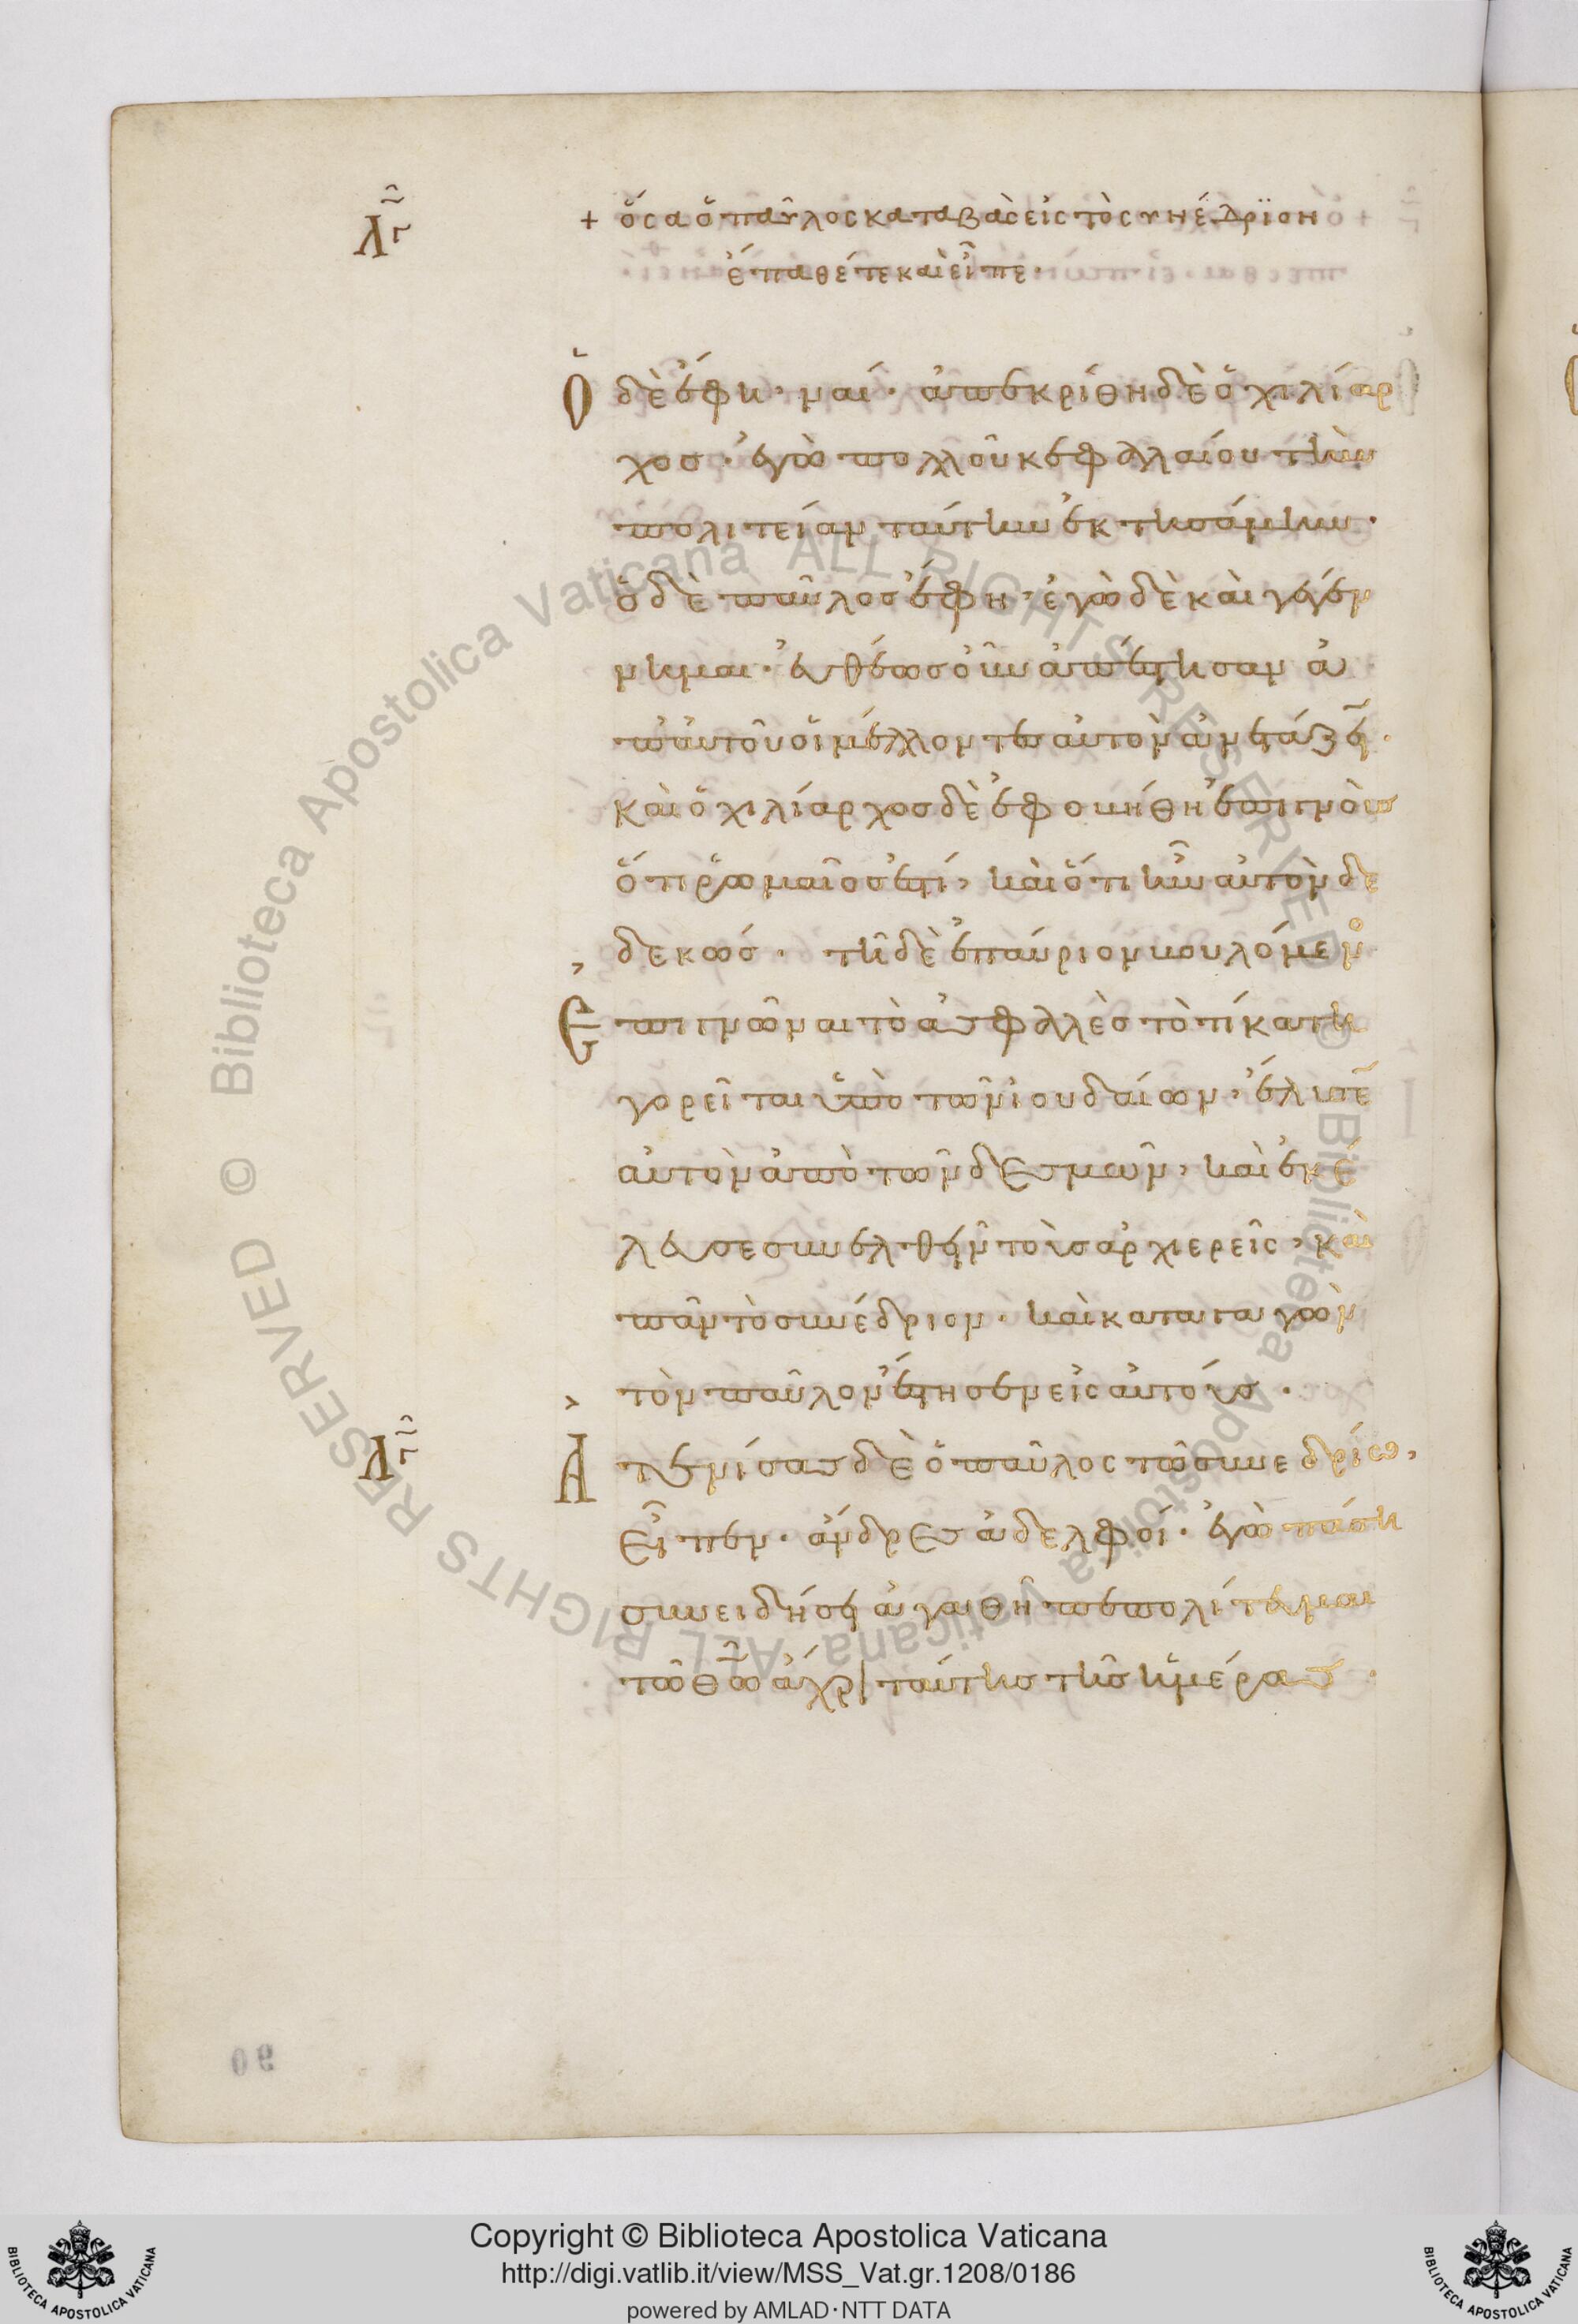 λγ
+ ὅσα ὁ παῦλος καταβὰς εἰς τὸ συνέδριον
ἔπαθέ τε καὶ εἶπε·
Ὁ δὲ ἔφη· ναί· ἀπεκρίθη δὲ ὁ χιλίαρ
χος· ἐγὼ πολλοῦ κεφαλαίου τὴν
πολιτείαν ταύτην ἐκτησάμην·
ὁ δὲ παῦλος ἔφη· ἐγὼ δὲ καὶ γεγέν
νημαι· εὐθέως οὖν ἀπέστησαν ἀ
π' αὐτοῦ οἱ μέλλοντες αὐτὸν ἀνετάζειν·
καὶ ὁ χιλίαρχος δὲ ἐφοβήθη ἐπιγνοὺς
ὅτι ῥωμαῖος ἐστί, καὶ ὅτι ἦν αὐτὸν δε
δεκώς· τῇ δὲ ἐπαύριον βουλόμενο
Ἐπιγνῶναι τὸ ἀσφαλὲς τὸ τί κατη
γορεῖται ὑπὸ τῶν ἰουδαίων, ἔλυσεν
αὐτὸν ἀπὸ τῶν δεσμῶν, καὶ ἐκέ
λευσε συνελθεῖν τοὺς ἀρχιερεῖς, καὶ
πᾶν τὸ συνέδριον· καὶ καταγαγὼν
τὸν παῦλον ἔστησεν εἰς αὐτούς·
λγ
Ἀτενίσας δὲ ὁ παῦλος τῷ συνεδρίω,
εἶπεν· ἄνδρες ἀδελφοί· ἐγὼ πάση
συνειδήσει ἀγαθῇ πεπολίτευμαι
τῶ θῶ ἄχρι ταύτης τῆς ἡμέρας·
90
Copyright © Biblioteca Apostolica Vaticana
http://digi.vatlib.it/view/MSS_Vat.gr.1208/0186
powered by AMLAD·NTT DATA
BIBLIOTECA APOSTOLICA VATICANA
BIBLIOTECA APOSTOLICA VATICANA
© Biblioteca Apostolica Vaticana ALL RIGHTS RESERVED
© Biblioteca Apostolica Vaticana ALL RIGHTS RESERVED